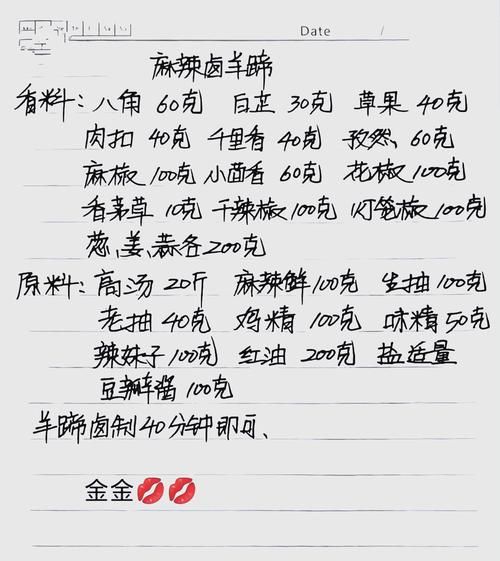 Date /
麻辣卤羊蹄
香料：八角 60克 白芷 30克 草果 40克
肉扣 40克 千里香 40克 孜然、60克
麻椒 100克 小茴香 60克 花椒 100克
香茅草 10克 干辣椒 100克 灯笼椒 100克
葱、姜、蒜各200克
原料：高汤 20斤 麻辣鲜 100克 生抽 100克
老抽 40克 鸡精 100克 味精 50克
辣妹子 100克 红油 200克 盐适量
豆瓣酱 100克
羊蹄卤制40分钟即可、
金金💋💋